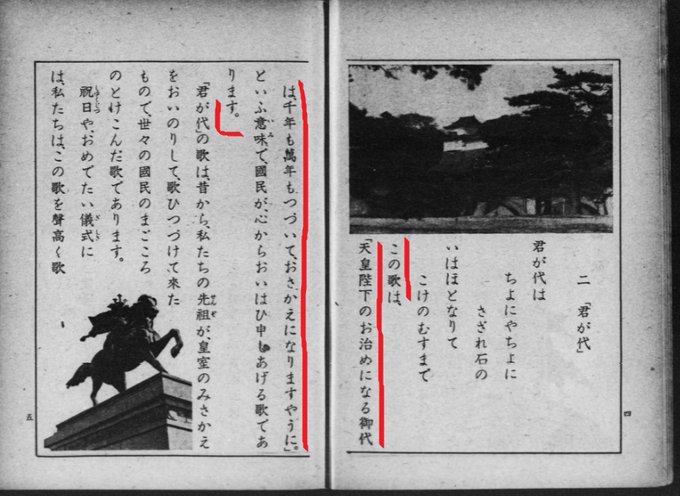 二 「君が代」
君が代は
ちよにやちよに
さざれ石の
いはほとなりて
こけのむすまで
この歌は、
「天皇陛下のお治めになる御代
四
は、千年も萬年もつづいて、おさかえになりますやうに。」
といふ意味で、國民が、心からおいはひ申しあげる歌であ
ります。
「君が代」の歌は、昔から、私たちの先祖が、皇室のみさかえ
をおいのりして、歌ひつづけて來た
もので、世々の國民のまごころ
のとけこんだ歌であります。
祝日や、おめでたい儀式に
は、私たちは、この歌を聲高く歌
五